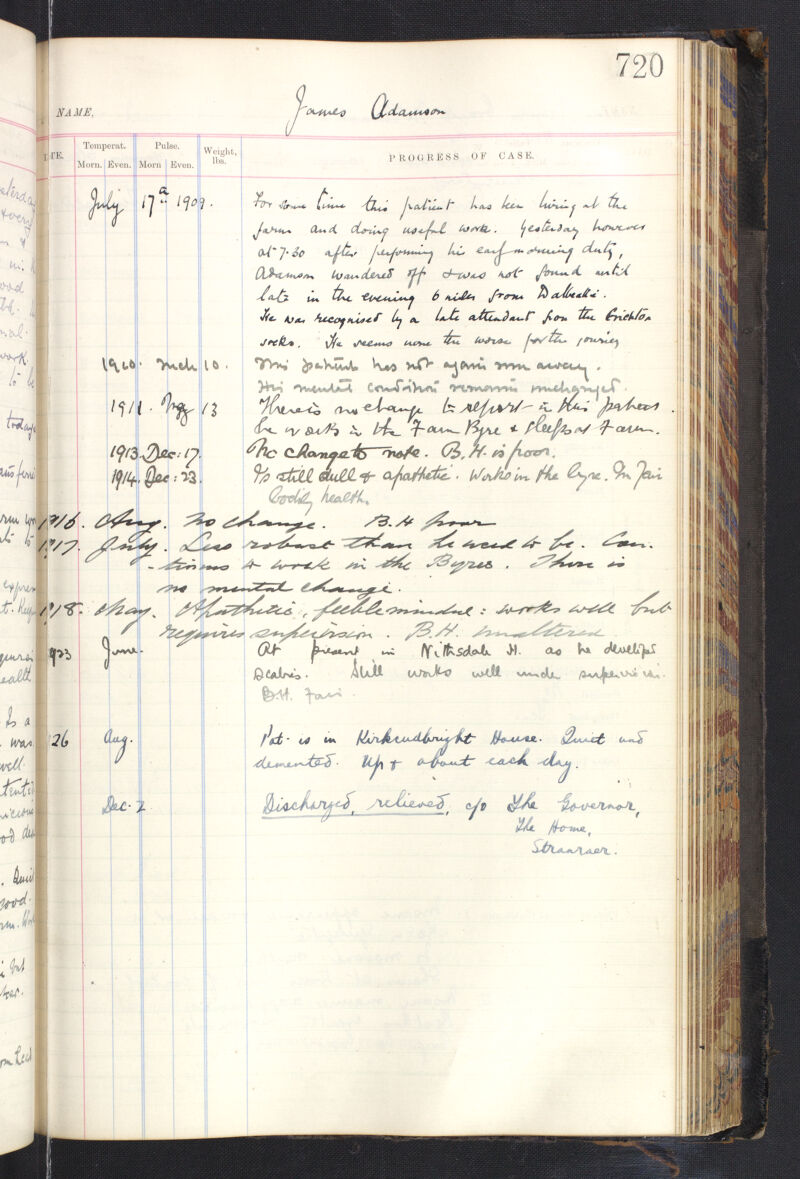 720
NAME,
James Adamson
Temperat. Pulse. Weight, lbs.
Morn. Even. Morn Even.
PROGRESS OF CASE.
July 17th 1909. For some time this patient has been living at the
farm and doing useful work. Yesterday however
at 7.30 after performing his early morning duty,
Adamson wandered off & was not found until
late in the evening 6 miles from Dalbeattie.
He was recognised by a late attendant from the Crichton
He seems none the worse for the journey
1910. March 10. This patient has not again run away.
His mental condition remains unchanged.
1911. 13 There is no change to report in this patient.
he works in the Farm Byre & sleeps at Farm.
1913. Dec: 17. No change to note. B.H. is poor.
1914. Dec: 23. Is still dull & apathetic. Works in the byre. In fair
bodily health.
1916. Aug. No change. B.H poor
1917. July. Less robust than he used to be. Con-
-tinues to work in the Byres. There is
no mental change.
1918. May. Apathetic, feebleminded: works well but
requires supervision. B.H. unaltered
923 June. At present in Nithsdale H. as he developed
scabies. Still works well under supervision.
B.H. Fair.
26 Aug. Pat. is in Kirkcudbright House. Quiet and
demented. Up & about each day.
Dec. 7 Discharged, relieved, c/o The Governor,
The Home,
Stranraer.